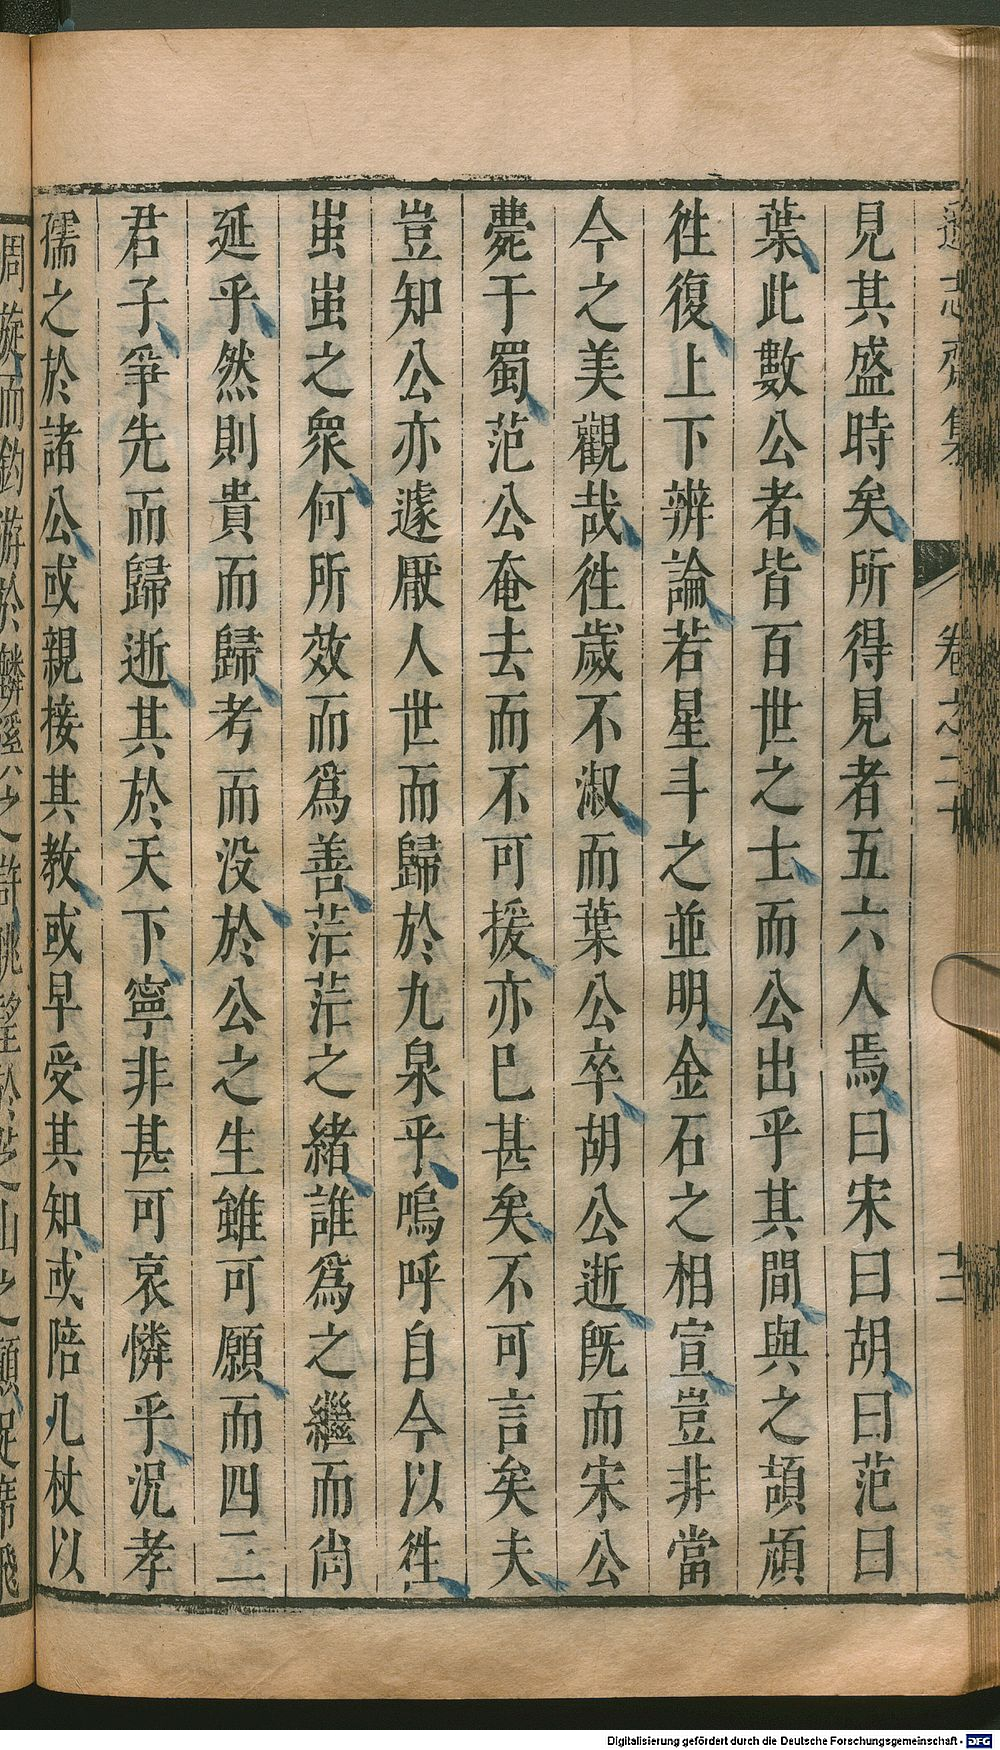 遜志齋集 卷之二十 十二
見其盛時矣所得見者五六人焉曰宋曰胡曰范曰
葉此數公者皆百世之士而公出乎其間與之頡頏
徃復上下辨論若星斗之並明金石之相宣豈非當
今之美觀哉徃歲不淑而葉公卒胡公逝旣而宋公
薨于蜀范公奄去而不可援亦已甚矣不可言矣夫
豈知公亦遽厭人世而歸於九泉乎嗚呼自今以徃
蚩蚩之衆何所效而爲善茫茫之緒誰爲之繼而尙
延乎然則貴而歸考而没於公之生雖可願而四三
君子爭先而歸逝其於天下寧非甚可哀憐乎況孝
孺之於諸公或親接其教或早受其知或陪几杖以
周旋而鈞游於麟溪之之滸眺望於山之顛促席飛
Digitalisierung gefördert durch die Deutsche Forschungsgemeinschaft - DFG